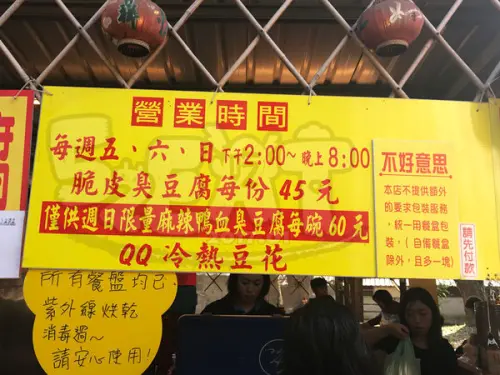 營業時間
每週五、六、日下午2:00~晚上8:00
脆皮臭豆腐每份45元
僅供週日限量麻辣鴨血臭豆腐每碗60元
QQ冷熱豆花
不好意思
本店不提供額外
的要求包裝服務
，統一用餐盒包
裝，(自備餐盒
除外，且多一塊)
請先付款
所有餐盤均已
紫外線烘乾
消毒過~
請安心使用!